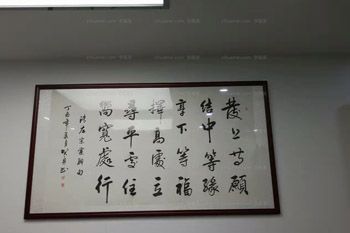 發上等願
結中等緣
享下等福
擇高處立
尋平處住
向寬處行
左宗棠
丁酉年